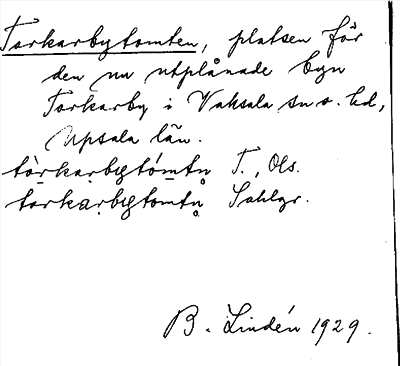 Torkarbytomten, platsen för
den nu utplånade byn
Torkarby i Vaksala sn o. hd,
Upsala län.
tòrkarbytómtn T., Ols.
torkarbytomtn Sahlgr.
B. Lindén 1929.